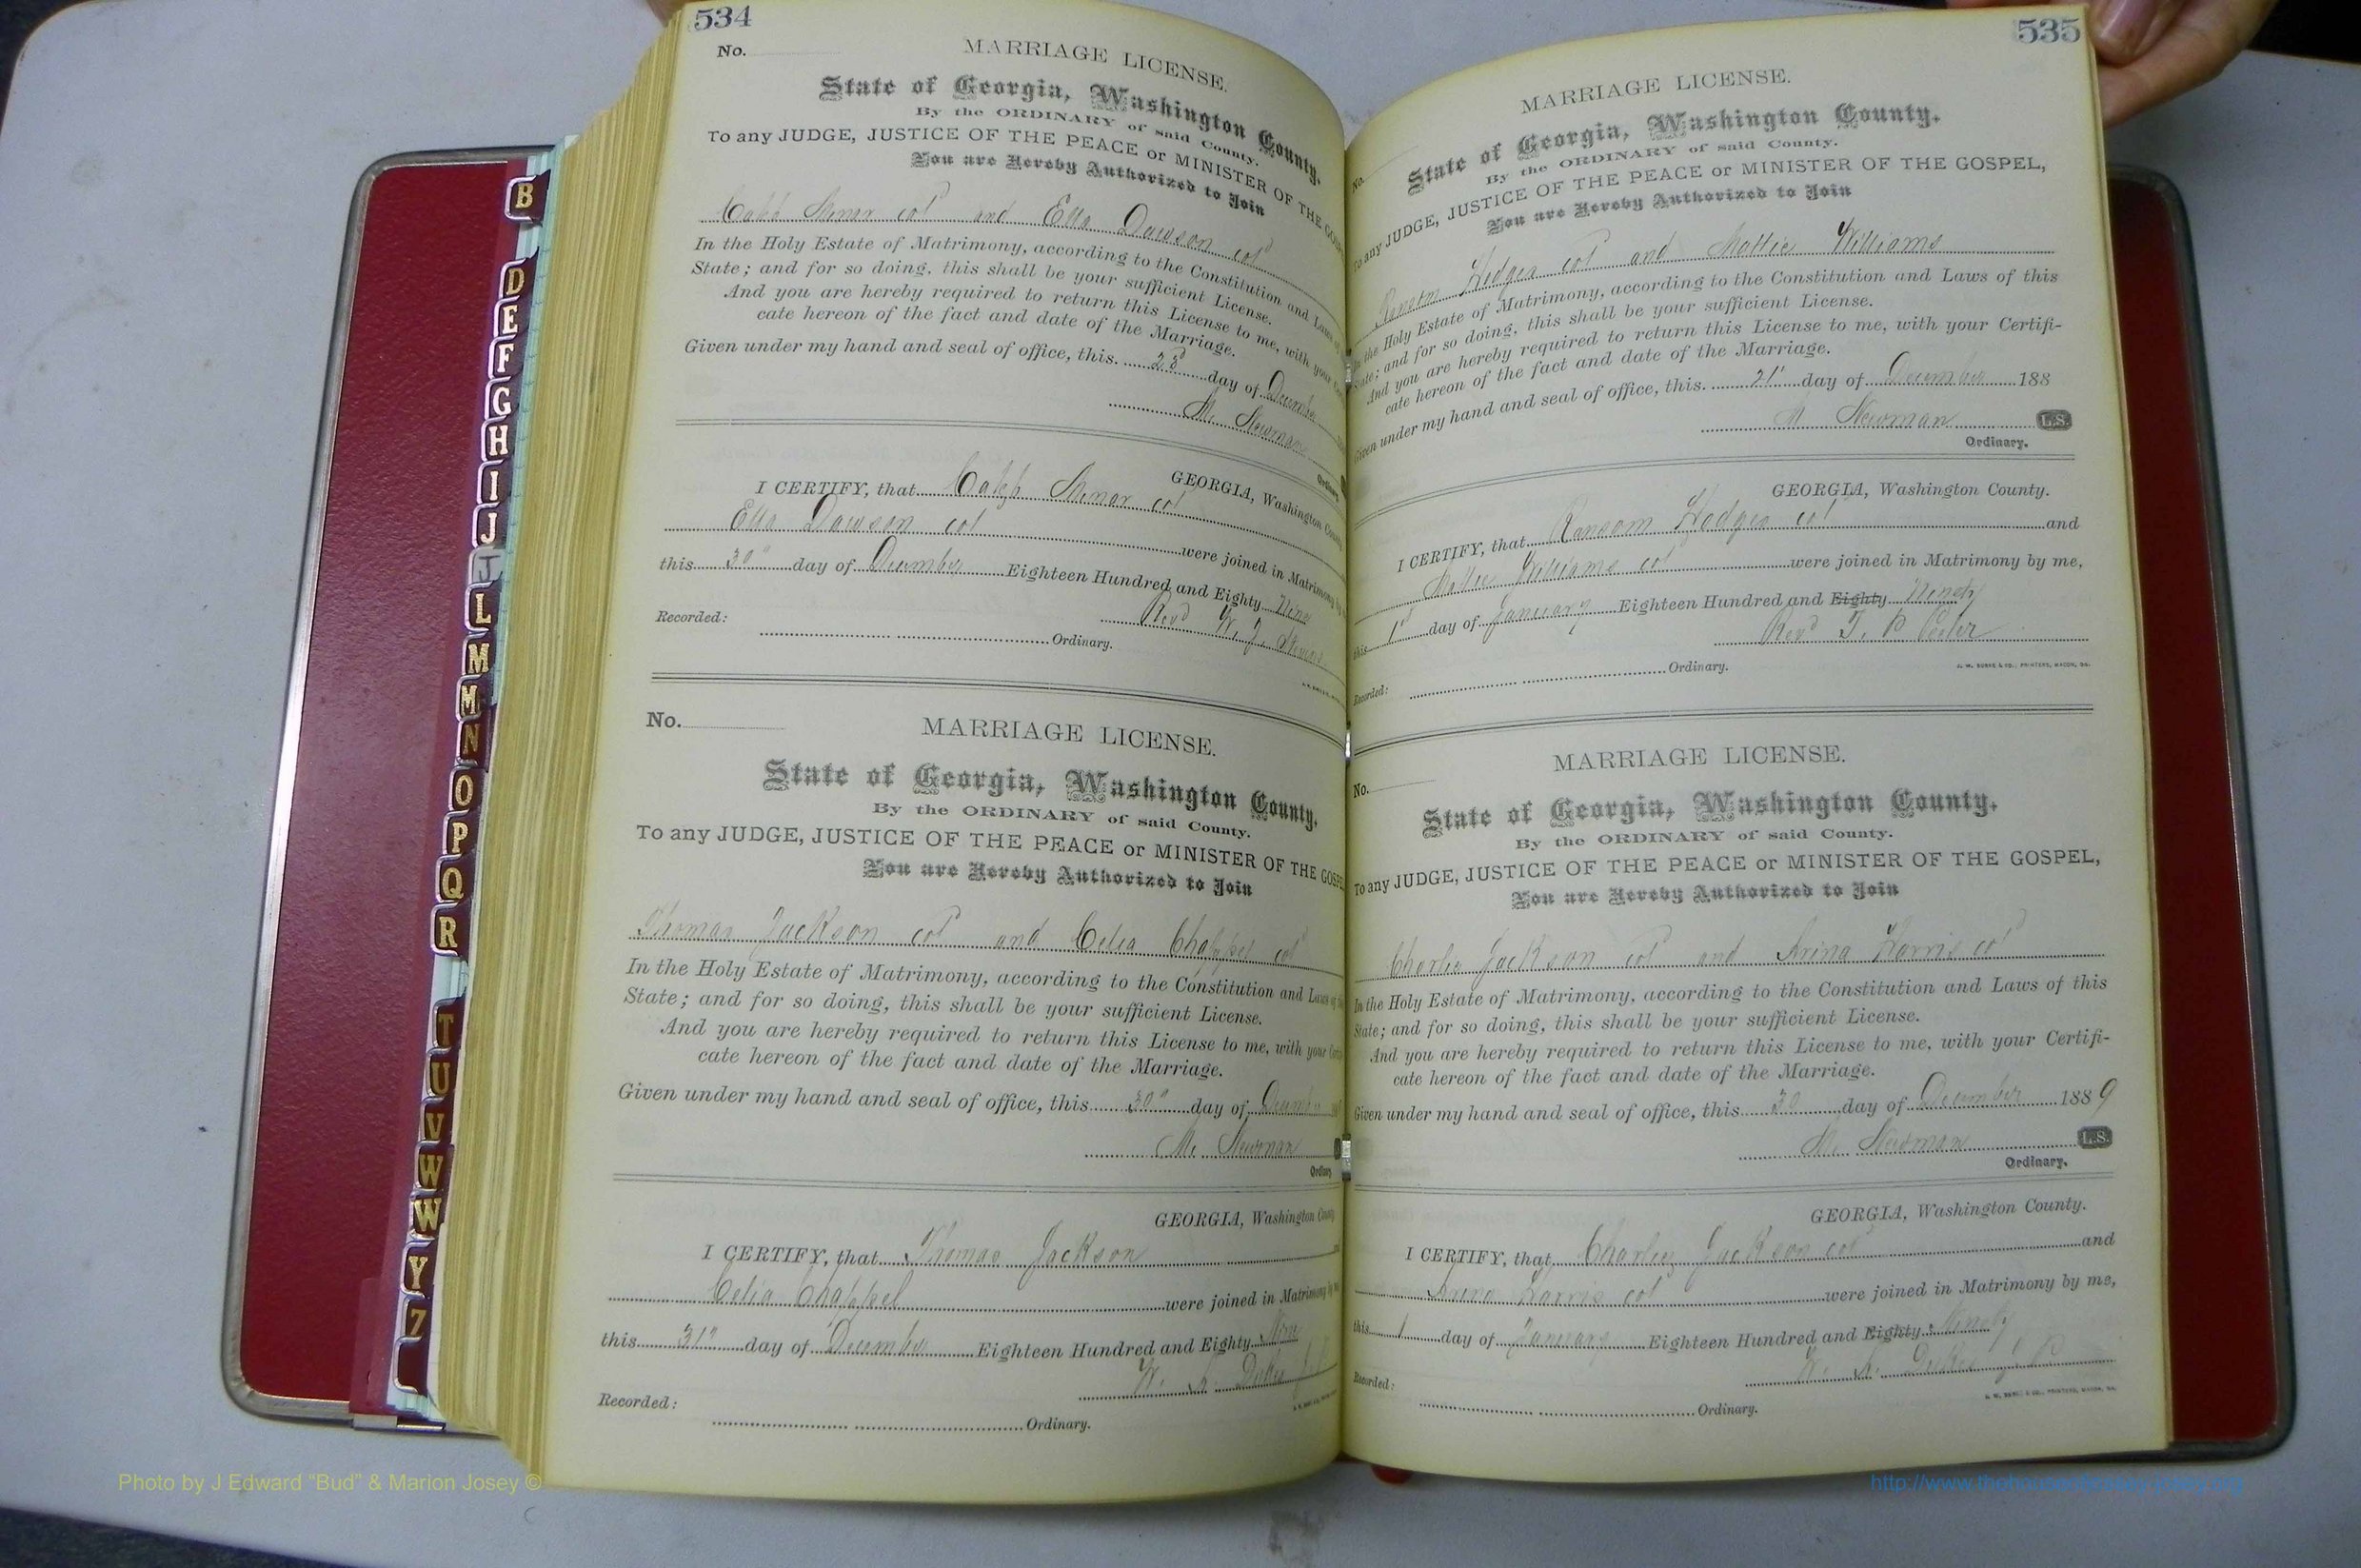 534
No.
MARRIAGE LICENSE.
State of Georgia, Washington County.
By the ORDINARY of said County.
To any JUDGE, JUSTICE OF THE PEACE or MINISTER OF THE GOSP
You are Hereby Authorized to Join
Caleb Minor col and Ella Dawson col
In the Holy Estate of Matrimony, according to the Constitution and Laws
State; and for so doing, this shall be your sufficient License.
And you are hereby required to return this License to me, with your
cate hereon of the fact and date of the Marriage.
Given under my hand and seal of office, this 28 day of December
M. Newman
Ordinary
GEORGIA, Washington County
I CERTIFY, that Caleb Minor col
Ella Dawson col were joined in Matrimony
this 30" day of December Eighteen Hundred and Eighty Nine
Revd W. J.
Recorded: Ordinary.
No.
MARRIAGE LICENSE.
State of Georgia, Washington County.
By the ORDINARY of said County.
To any JUDGE, JUSTICE OF THE PEACE or MINISTER OF THE GOSPE
You are Hereby Authorized to Join
Thomas Jackson col and Celia Chappel col
In the Holy Estate of Matrimony, according to the Constitution and Laws of
State; and for so doing, this shall be your sufficient License.
And you are hereby required to return this License to me, with your
cate hereon of the fact and date of the Marriage.
Given under my hand and seal of office, this 30" day of December
M. Newman
Ordinary
GEORGIA, Washington County
I CERTIFY, that Thomas Jackson
Celia Chappel were joined in Matrimony by
this 31" day of December Eighteen Hundred and Eighty Nine
W. Dukes
Recorded: Ordinary.
535
No.
MARRIAGE LICENSE.
State of Georgia, Washington County.
By the ORDINARY of said County.
To any JUDGE, JUSTICE OF THE PEACE or MINISTER OF THE GOSPEL,
You are Hereby Authorized to Join
Ransom Hodges col and Mattie Williams
the Holy Estate of Matrimony, according to the Constitution and Laws of this
State; and for so doing, this shall be your sufficient License.
And you are hereby required to return this License to me, with your Certifi-
cate hereon of the fact and date of the Marriage.
Given under my hand and seal of office, this 21" day of December 188
M Newman L.S.
Ordinary.
GEORGIA, Washington County.
I CERTIFY, that Ransom Hodges col and
Mattie Williams col were joined in Matrimony by me,
this 1st day of January Eighteen Hundred and Eighty Ninety
Revd T. P.
Recorded: Ordinary.
J. W. BURKE & CO., PRINTERS, MACON, GA.
No.
MARRIAGE LICENSE.
State of Georgia, Washington County.
By the ORDINARY of said County.
To any JUDGE, JUSTICE OF THE PEACE or MINISTER OF THE GOSPEL,
You are Hereby Authorized to Join
Charlie Jackson col and Arina Harris col
In the Holy Estate of Matrimony, according to the Constitution and Laws of this
State; and for so doing, this shall be your sufficient License.
And you are hereby required to return this License to me, with your Certifi-
cate hereon of the fact and date of the Marriage.
Given under my hand and seal of office, this 30 day of December 1889
M. Newman L.S.
Ordinary.
GEORGIA, Washington County.
I CERTIFY, that Charlie Jackson col and
Arina Harris col were joined in Matrimony by me,
this 1 day of January Eighteen Hundred and Eighty Ninety
W. Dukes J P
Recorded: Ordinary.
B
D
E
F
G
H
I
J
J
L
M
M
N
O
P
Q
R
T
U
V
W
W
Y
Z
Photo by J Edward "Bud" & Marion Josey ©